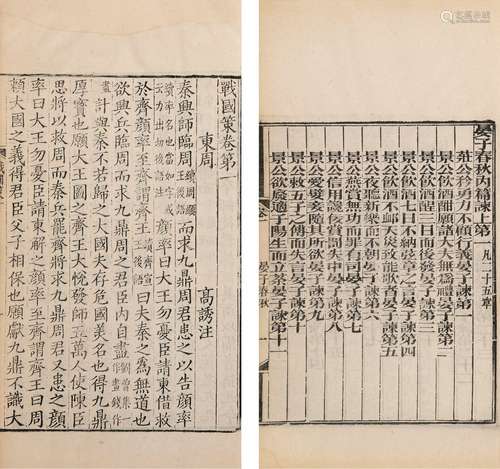 晏子春秋內篇諫上第一 凡二十五章
莊公矜勇力不顧行義晏子諫第一
景公飲酒酣願諸大夫無為禮晏子諫第二
景公飲酒酲三日而後發晏子諫第三
景公飲酒七日不納弦章之言晏子諫第四
景公飲酒不卹天災致能歌者晏子諫第五
景公夜聽新樂而不朝晏子諫第六
景公燕賞無功而罪有司晏子諫第七
景公信用讒佞賞罰失中晏子諫第八
景公愛嬖妾隨其所欲晏子諫第九
景公敕五子之傅而失言晏子諫第十
景公欲廢適子陽生而立荼晏子諫第十一
晏子春秋
戰國策卷第一
東周 高誘注
秦興師臨周而求九鼎周君患之以告顏率
顏率曰大王勿憂臣請東借救
於齊顏率至齊謂齊王曰夫秦之為無道也
欲興兵臨周而求九鼎周之君臣內自盡
計與秦不若歸之大國夫存危國美名也得九鼎
厚寶也願大王圖之齊王大悅發師五萬人使陳臣
思將以救周而秦兵罷齊將求九鼎周君又患之顏
率曰大王勿憂臣請東解之顏率至齊謂齊王曰周
賴大國之義得君臣父子相保也願獻九鼎不識大